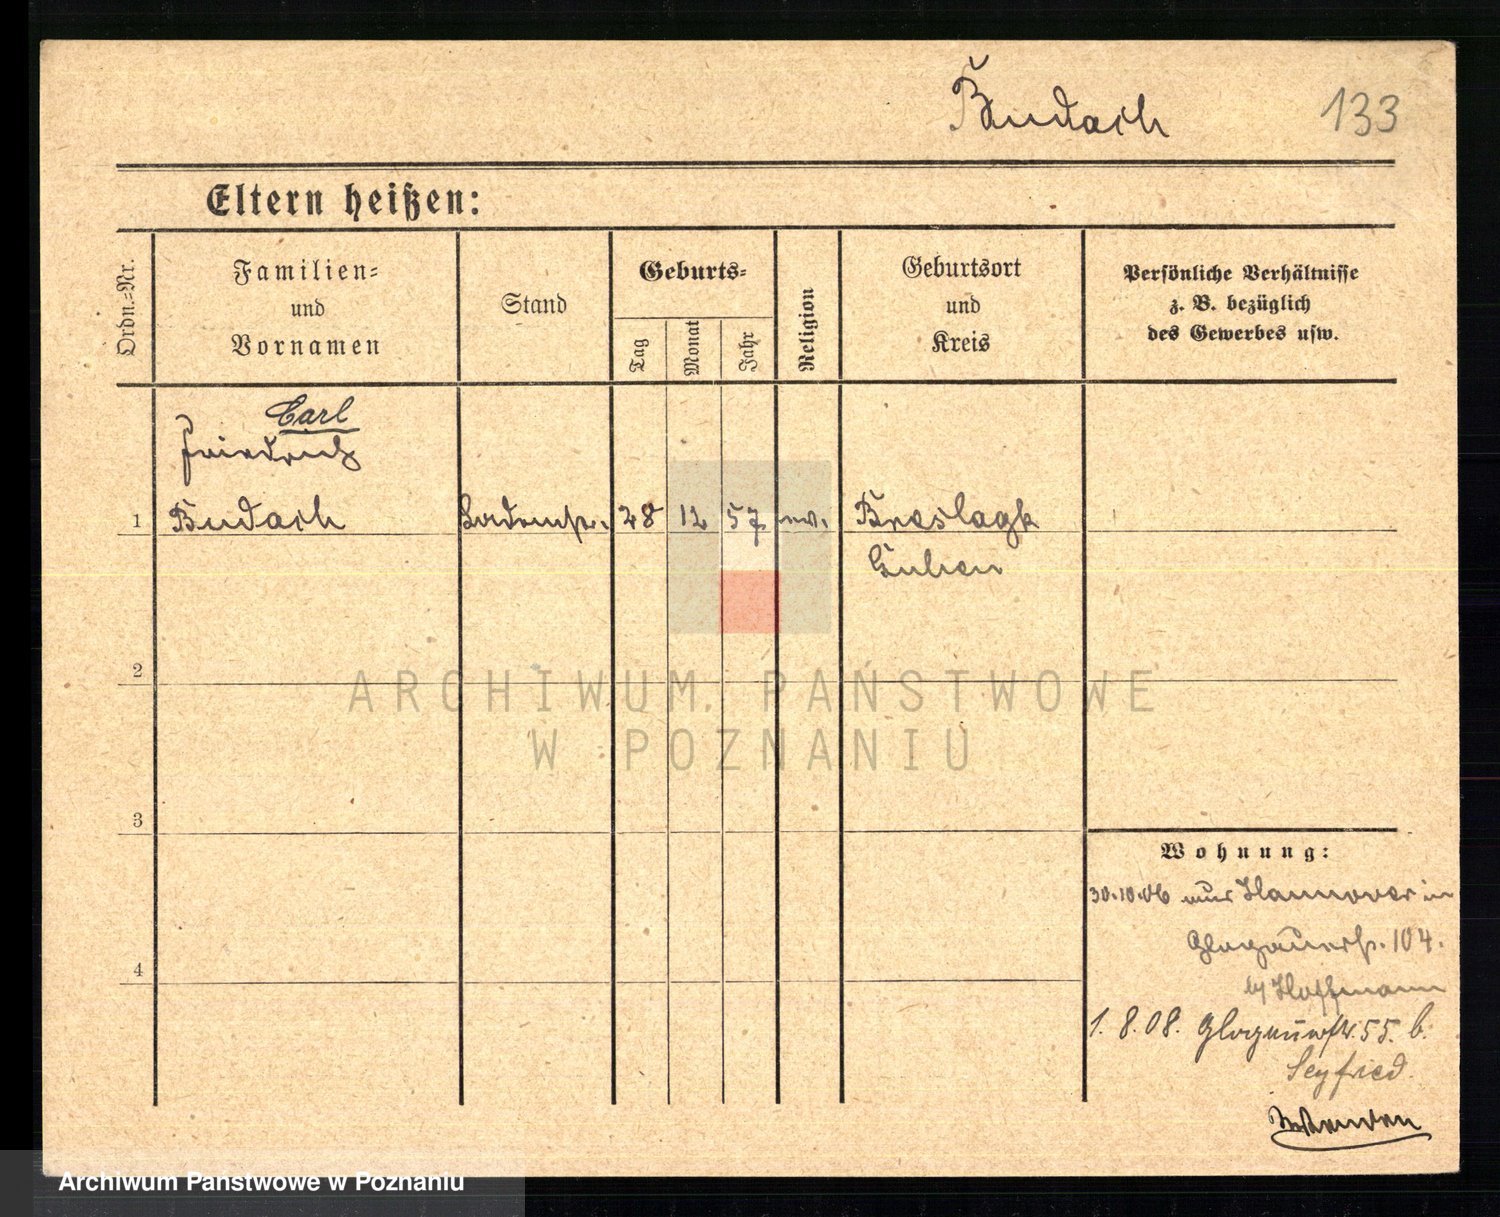 Budach 133
Eltern heißen:
Ordn.=Nr.
Familien=
und
Vornamen
Stand
Geburts=
Tag
Monat
Jahr
Religion
Geburtsort
und
Kreis
Persönliche Verhältnisse
z. B. bezüglich
des Gewerbes usw.
Carl
Friedrich
1 Budach 28 12 57 ev. Breslagk
Guben
2
3
4
Wohnung:
30.10.06 aus Hannover in
Glogauerstr. 104.
by Hoffmann
1. 8. 08. Glogauerstr. 55. b.
Seyfried.
ARCHIWUM PAŃSTWOWE
W POZNANIU
Archiwum Państwowe w Poznaniu